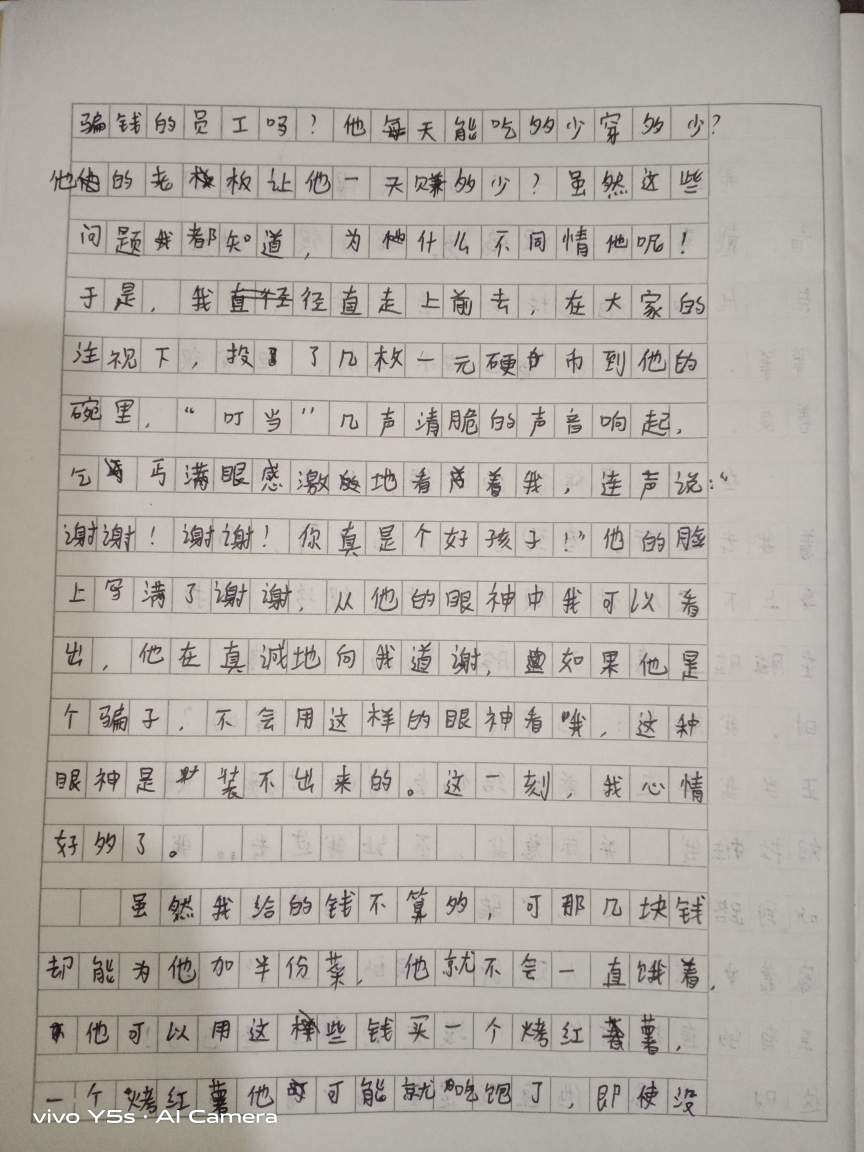 骗钱的员工吗？他每天能吃多少穿多少？
他的老板让他一天赚多少？虽然这些
问题我都知道，为他什么不同情他呢！
于是，我径直走上前去，在大家的
注视下，投了几枚一元硬币到他的
碗里，“叮当”几声清脆的声音响起，
乞丐满眼感激地看着我，连声说：“
谢谢！谢谢！你真是个好孩子！”他的脸
上写满了谢谢，从他的眼神中我可以看
出，他在真诚地向我道谢，如果他是
个骗子，不会用这样的眼神看哦，这种
眼神是装不出来的。这一刻，我心情
好多了。
虽然我给的钱不算多，可那几块钱
却能为他加半份菜，他就不会一直饿着，
他可以用这些钱买一个烤红薯，
一个烤红薯他可能就吃饱了，即使没
vivo Y5s · AI Camera